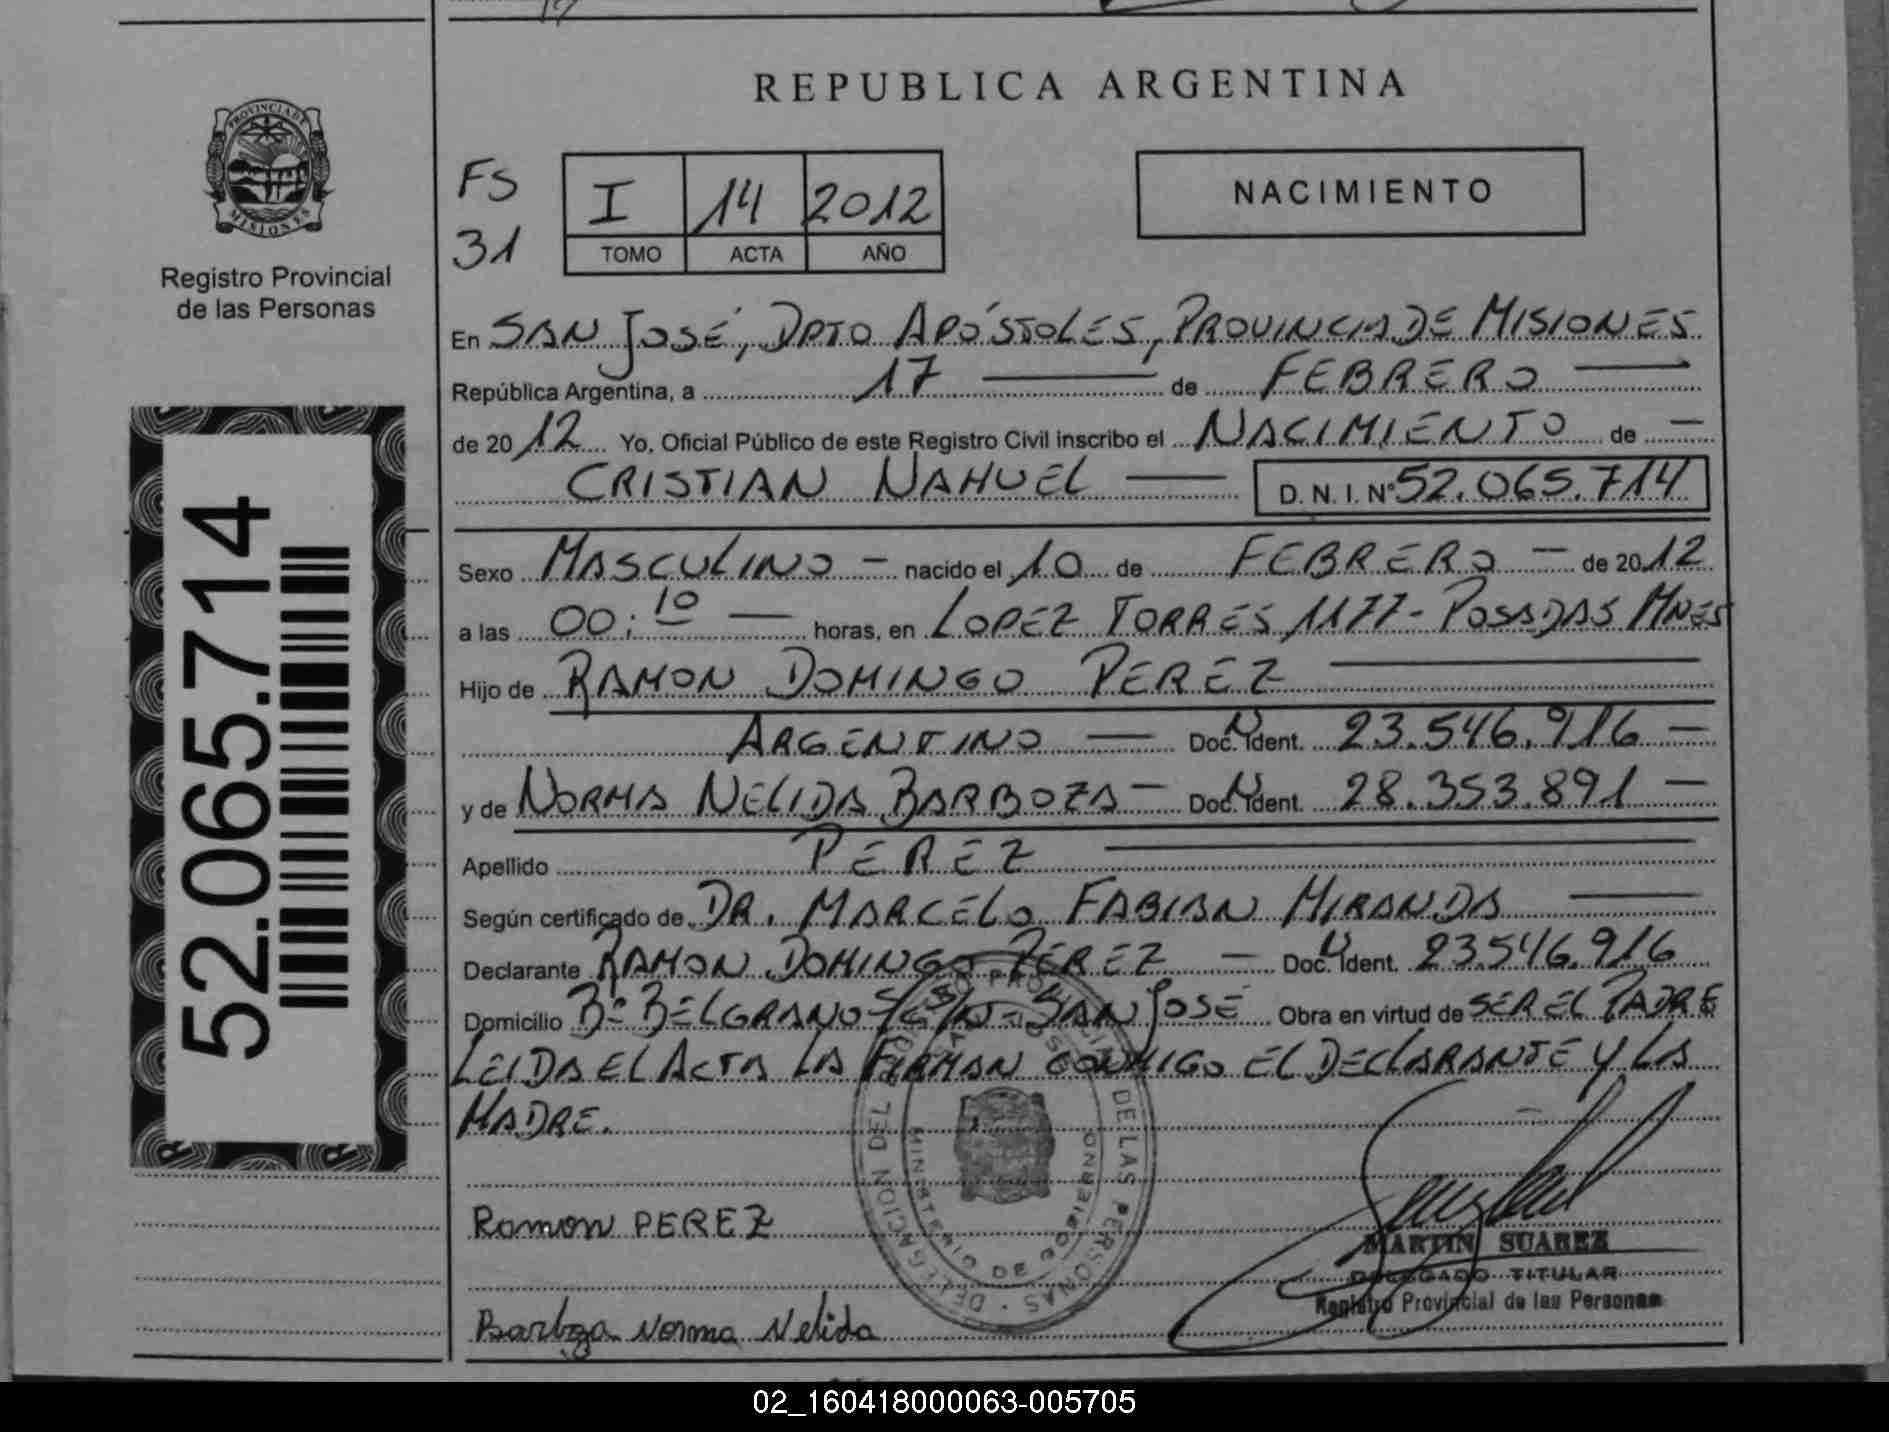 REPUBLICA ARGENTINA
PROVINCIA DE
MISIONES
Registro Provincial
de las Personas
FS
31
I 14 2012
TOMO ACTA AÑO
NACIMIENTO
En SAN JOSÉ, DPTO APÓSTOLES, PROVINCIA DE MISIONES
República Argentina, a 17 de FEBRERO
de 20 12 Yo, Oficial Público de este Registro Civil inscribo el NACIMIENTO de
CRISTIAN NAHUEL D.N.I.Nº 52.065.714
52.065.714
Sexo MASCULINO - nacido el 10 de FEBRERO - de 20 12
a las 00:10 horas, en LOPEZ TORRES 1177 - POSADAS MNES
Hijo de RAMON DOMINGO PEREZ
ARGENTINO Doc. N Ident. 23.546.916 -
y de NORMA NELIDA BARBOZA - Doc. N Ident. 28.353.891 -
Apellido PEREZ
Según certificado de DR. MARCELO FABIAN MIRANDA
Declarante RAMON DOMINGO PEREZ - Doc. N Ident. 23.546.916
Domicilio Bº BELGRANO S/N - SAN JOSÉ Obra en virtud de SER EL PADRE
LEIDA EL ACTA LA FIRMAN CONMIGO EL DECLARANTE Y LA
MADRE.
DELEGACION DEL REGISTRO PROVINCIAL DE LAS PERSONAS
MINISTERIO DE GOBIERNO
Ramon PEREZ
MARTIN SUAREZ
DELEGADO TITULAR
Registro Provincial de las Personas
Barboza Norma Nelida
02_160418000063-005705